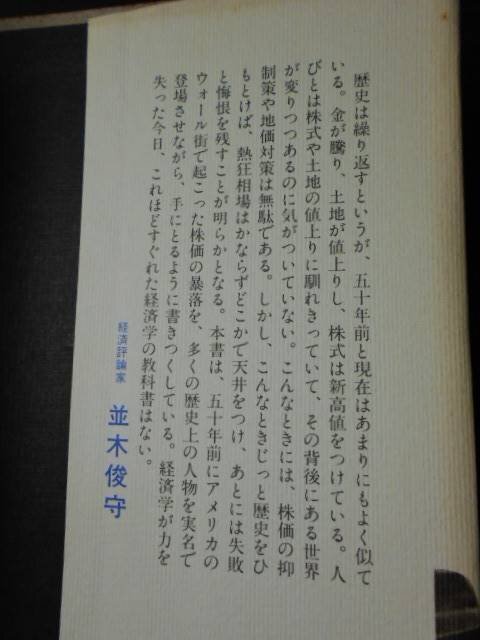 歴史は繰り返すというが、五十年前と現在はあまりにもよく似て
いる。金が騰り、土地が値上りし、株式は新高値をつけている。人
びとは株式や土地の値上りに馴れきっていて、その背後にある世界
が変りつつあるのに気がついていない。こんなときには、株価の抑
制策や地価対策は無駄である。しかし、こんなときじっと歴史をひ
もとけば、熱狂相場はかならずどこかで天井をつけ、あとには失敗
と悔恨を残すことが明らかとなる。本書は、五十年前にアメリカの
ウォール街で起こった株価の暴落を、多くの歴史上の人物を実名で
登場させながら、手にとるように書きつくしている。経済学が力を
失った今日、これほどすぐれた経済学の教科書はない。
経済評論家
並木俊守